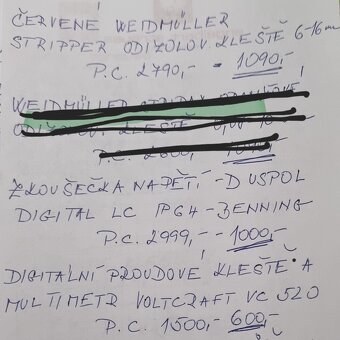 ČERVENÉ WEIDMÜLLER
STRIPPER ODIZOLOV. KLEŠTĚ 6-16m
P.C. 2790,- = 1090,-
WEIDMÜLLER
ODIZOLOV. KLEŠTĚ
P.C. 2600,-
ZKOUŠEČKA NAPĚTÍ - DUSPOL
DIGITAL LC IP64 - BENNING
P.C. 2999,- - 1000,-
DIGITALNÍ PROUDOVÉ KLEŠTĚ A
MULTIMETR VOLTCRAFT VC 520
P.C. 1500,- 600,-